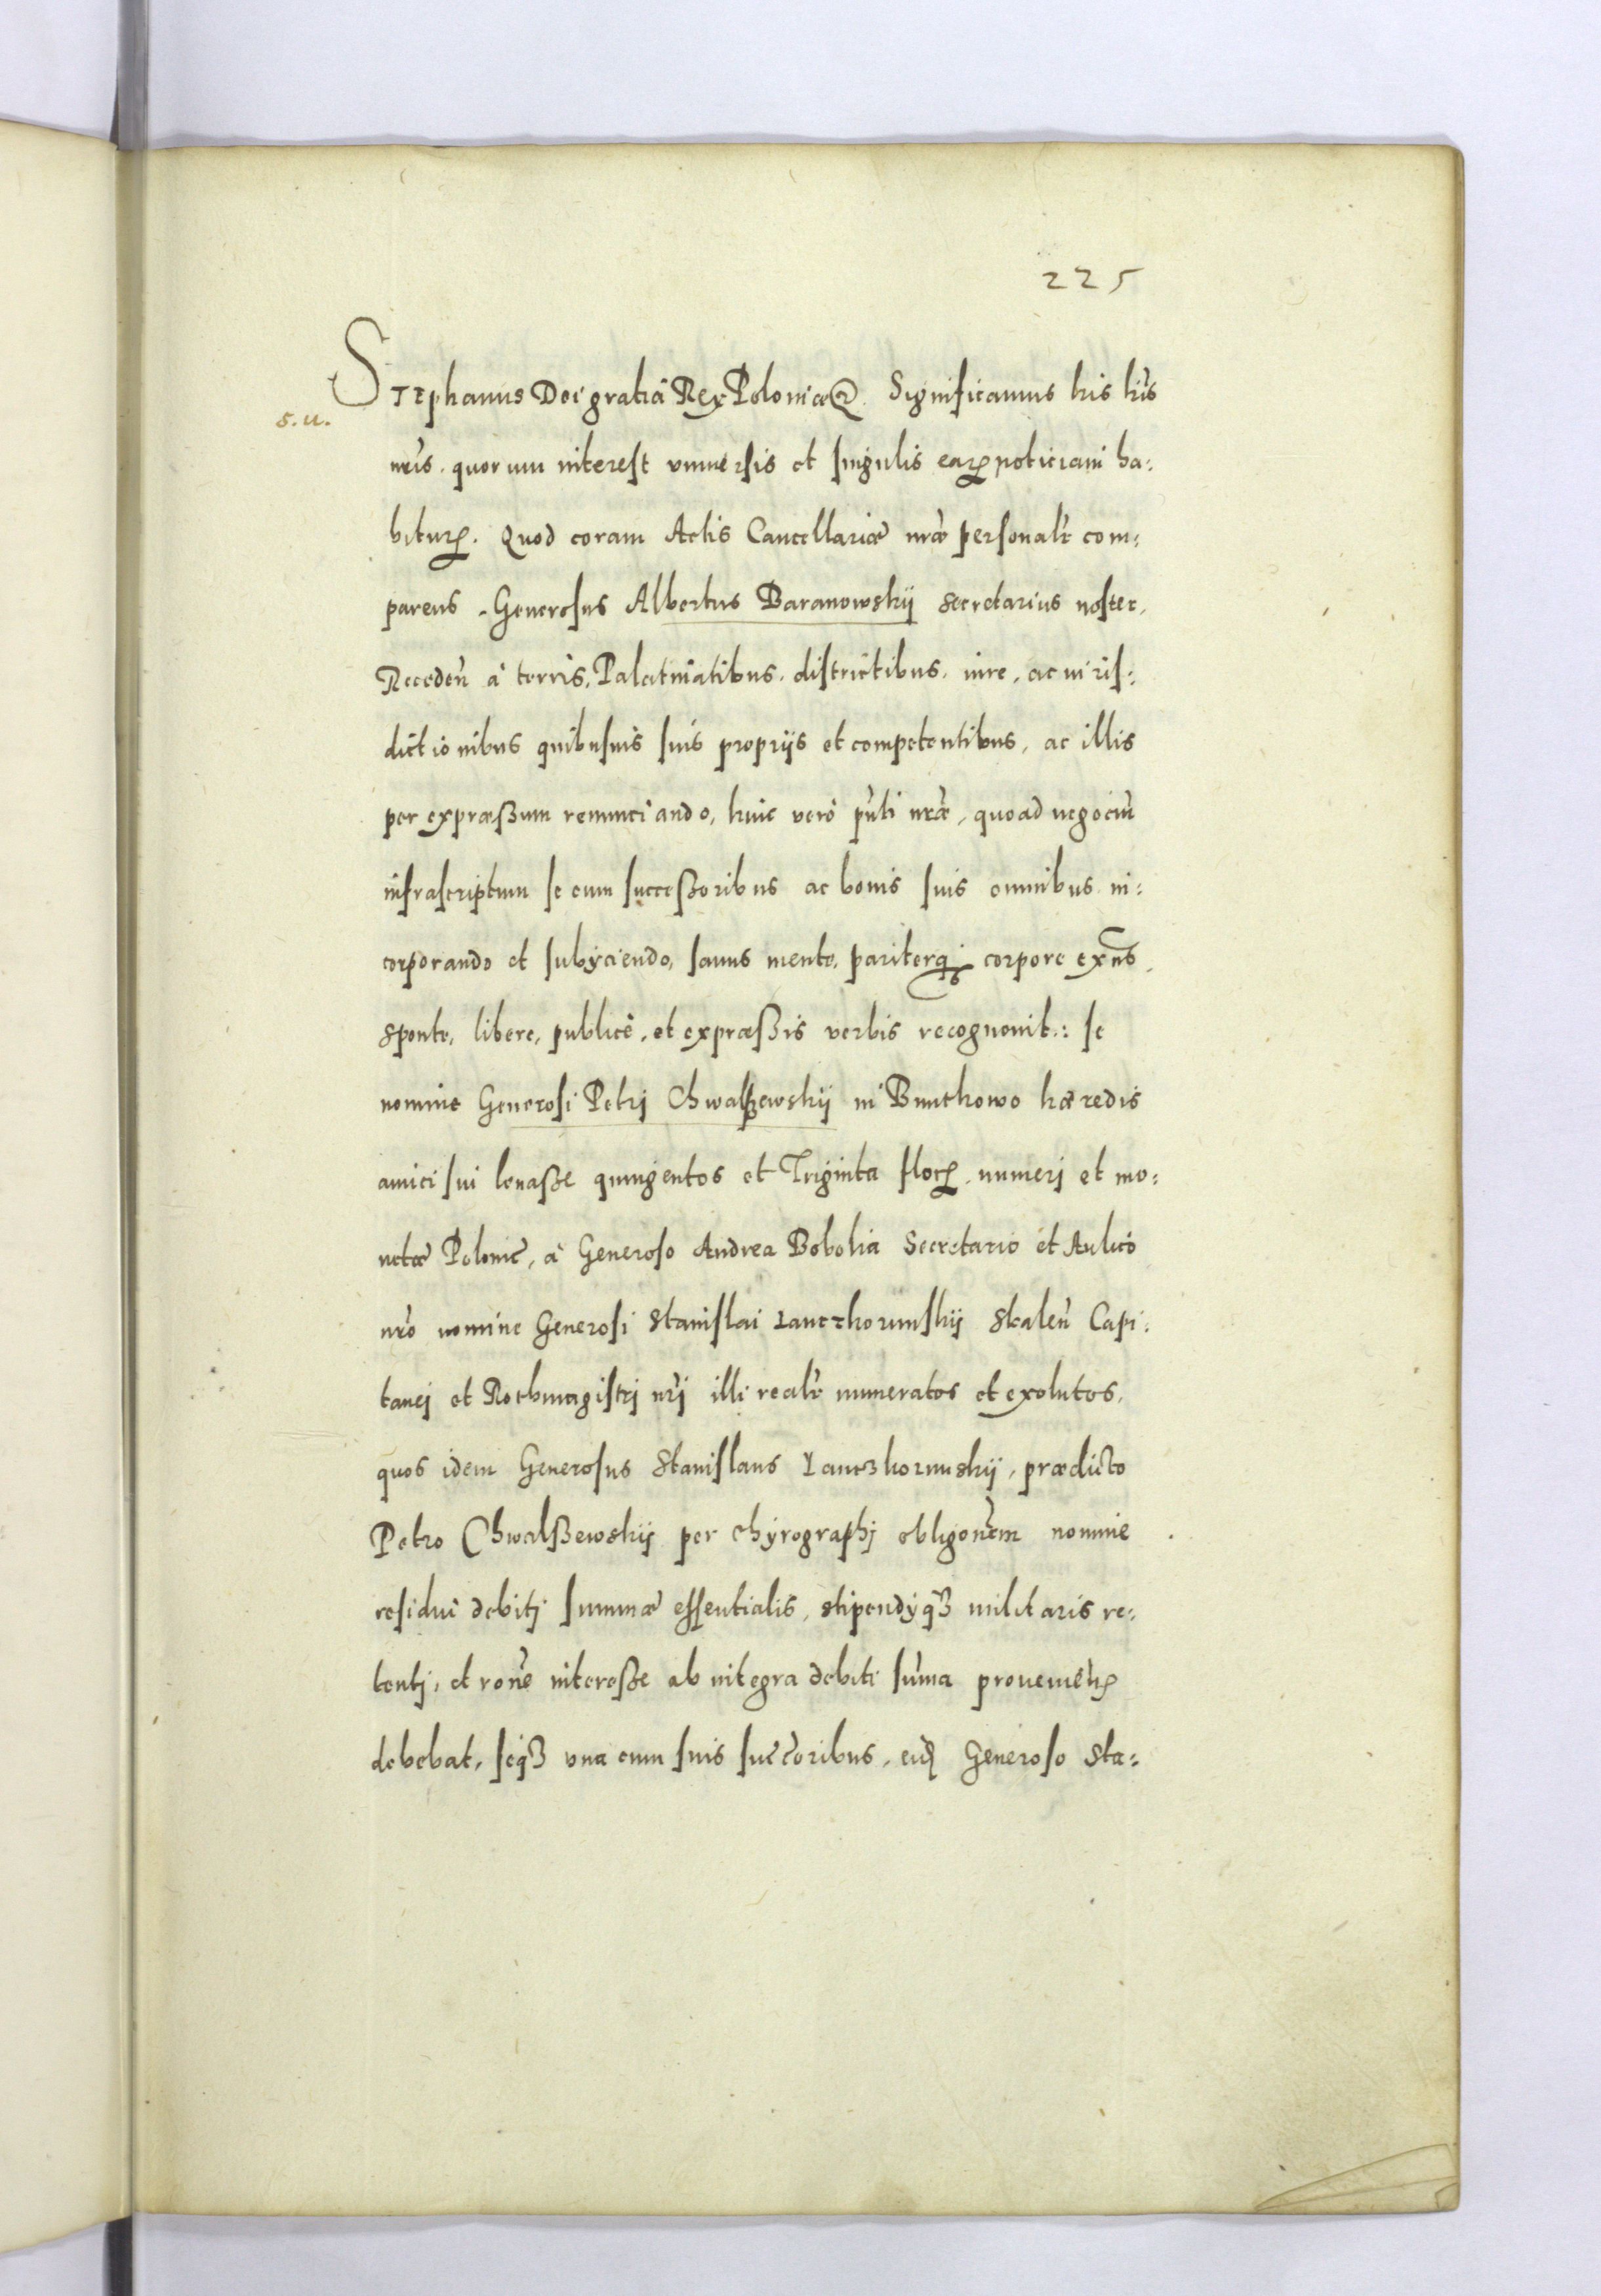 225
Stephanus Dei gratiâ Rex Poloniæ &c. Significamus his lrīs
nrīs, quorum interest vniuersis et singulis earꝝ noticiam ha:
biturꝝ. Quod coram Actis Cancellariæ nrāe personalr̄ com:
parens Generosus Albertus Baranowskÿ Secretarius noster,
Recedeñ à terris, Palatinatibus, districtibus, iure, ac iuris:
dictionibus quibusuis suis proprijs et competentibus, ac illis
per expræßum renunciando, huic verò pñti nrāe, quoad negociū
infrascriptum se cum succeßoribus ac bonis suis omnibus in:
corporando et subÿciendo, sanus mente, pariterq; corpore exñs,
sponte, libere, publicè, et expræßis verbis recognouit: se
nomine Generosi Petrj Chwalßewskÿ in Bnuthowo hæredis
amici sui leuaße quingentos et Triginta florꝝ, numerj et mo:
netæ Polonic̄, à Generoso Andrea Bobolia Secretario et Aulico
nrō nomine Generosi Stanislai Lanczkorunskÿ Skaleñ Capi:
tanej et Rothmagistrj nrj̄ illi realr̄ numeratos et exolutos,
quos idem Generosus Stanislaus Lanczkorunskÿ, prædicto
Petro Chwalßewskÿ per chÿrographj obligonēm nomine
residui debitj summæ essentialis, stipendÿqꝫ militaris re:
tentj, et ronē intereße ab integra debiti sum̄a prouenieñꝝ
debebat, seqꝫ vna cum suis succ̄oribus, eid̄ Generoso Sta: